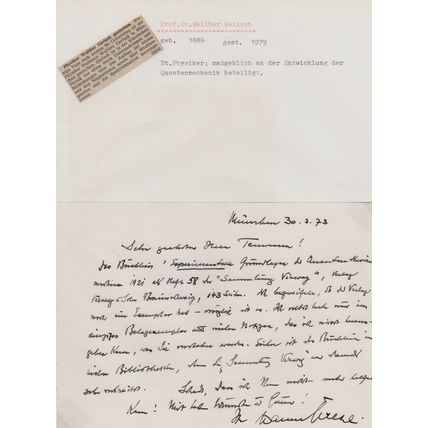 Physiker Walther Gerlach gestorben.
Prof.Dr.Walther Gerlach
geb. 1889 gest. 1979
Dt.Physiker; maßgeblich an der Entwicklung der
Quantenmechanik beteiligt.
München 30.3.73
Sehr geehrter Herr Temmen!
Das Büchlein "Experimentelle Grundlagen der Quantentheorie"
erschien 1921 als Heft 58 der "Sammlung Vieweg", Verlag
Vieweg u. Sohn Braunschweig, 143 Seiten. Ich bezweifele, ob der Verlag
noch ein Exemplar hat – möglich ist es. Ich selbst habe nur ein
einziges Belegexemplar mit vielen Notizen, das ich nicht heraus-
geben kann, was Sie verstehen werden. Sicher ist das Büchlein in
vielen Bibliotheken, denn die "Sammlung Vieweg" war damals
sehr verbreitet. Schade, dass ich Ihnen nicht mehr helfen
kann! Mit besten Wünschen u. Grüssen!
Ihr